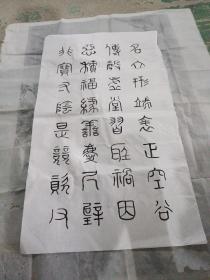 名立形端表正空谷
傳聲虛堂習聽禍因
惡積福緣善慶尺璧
非寶寸陰是競資父